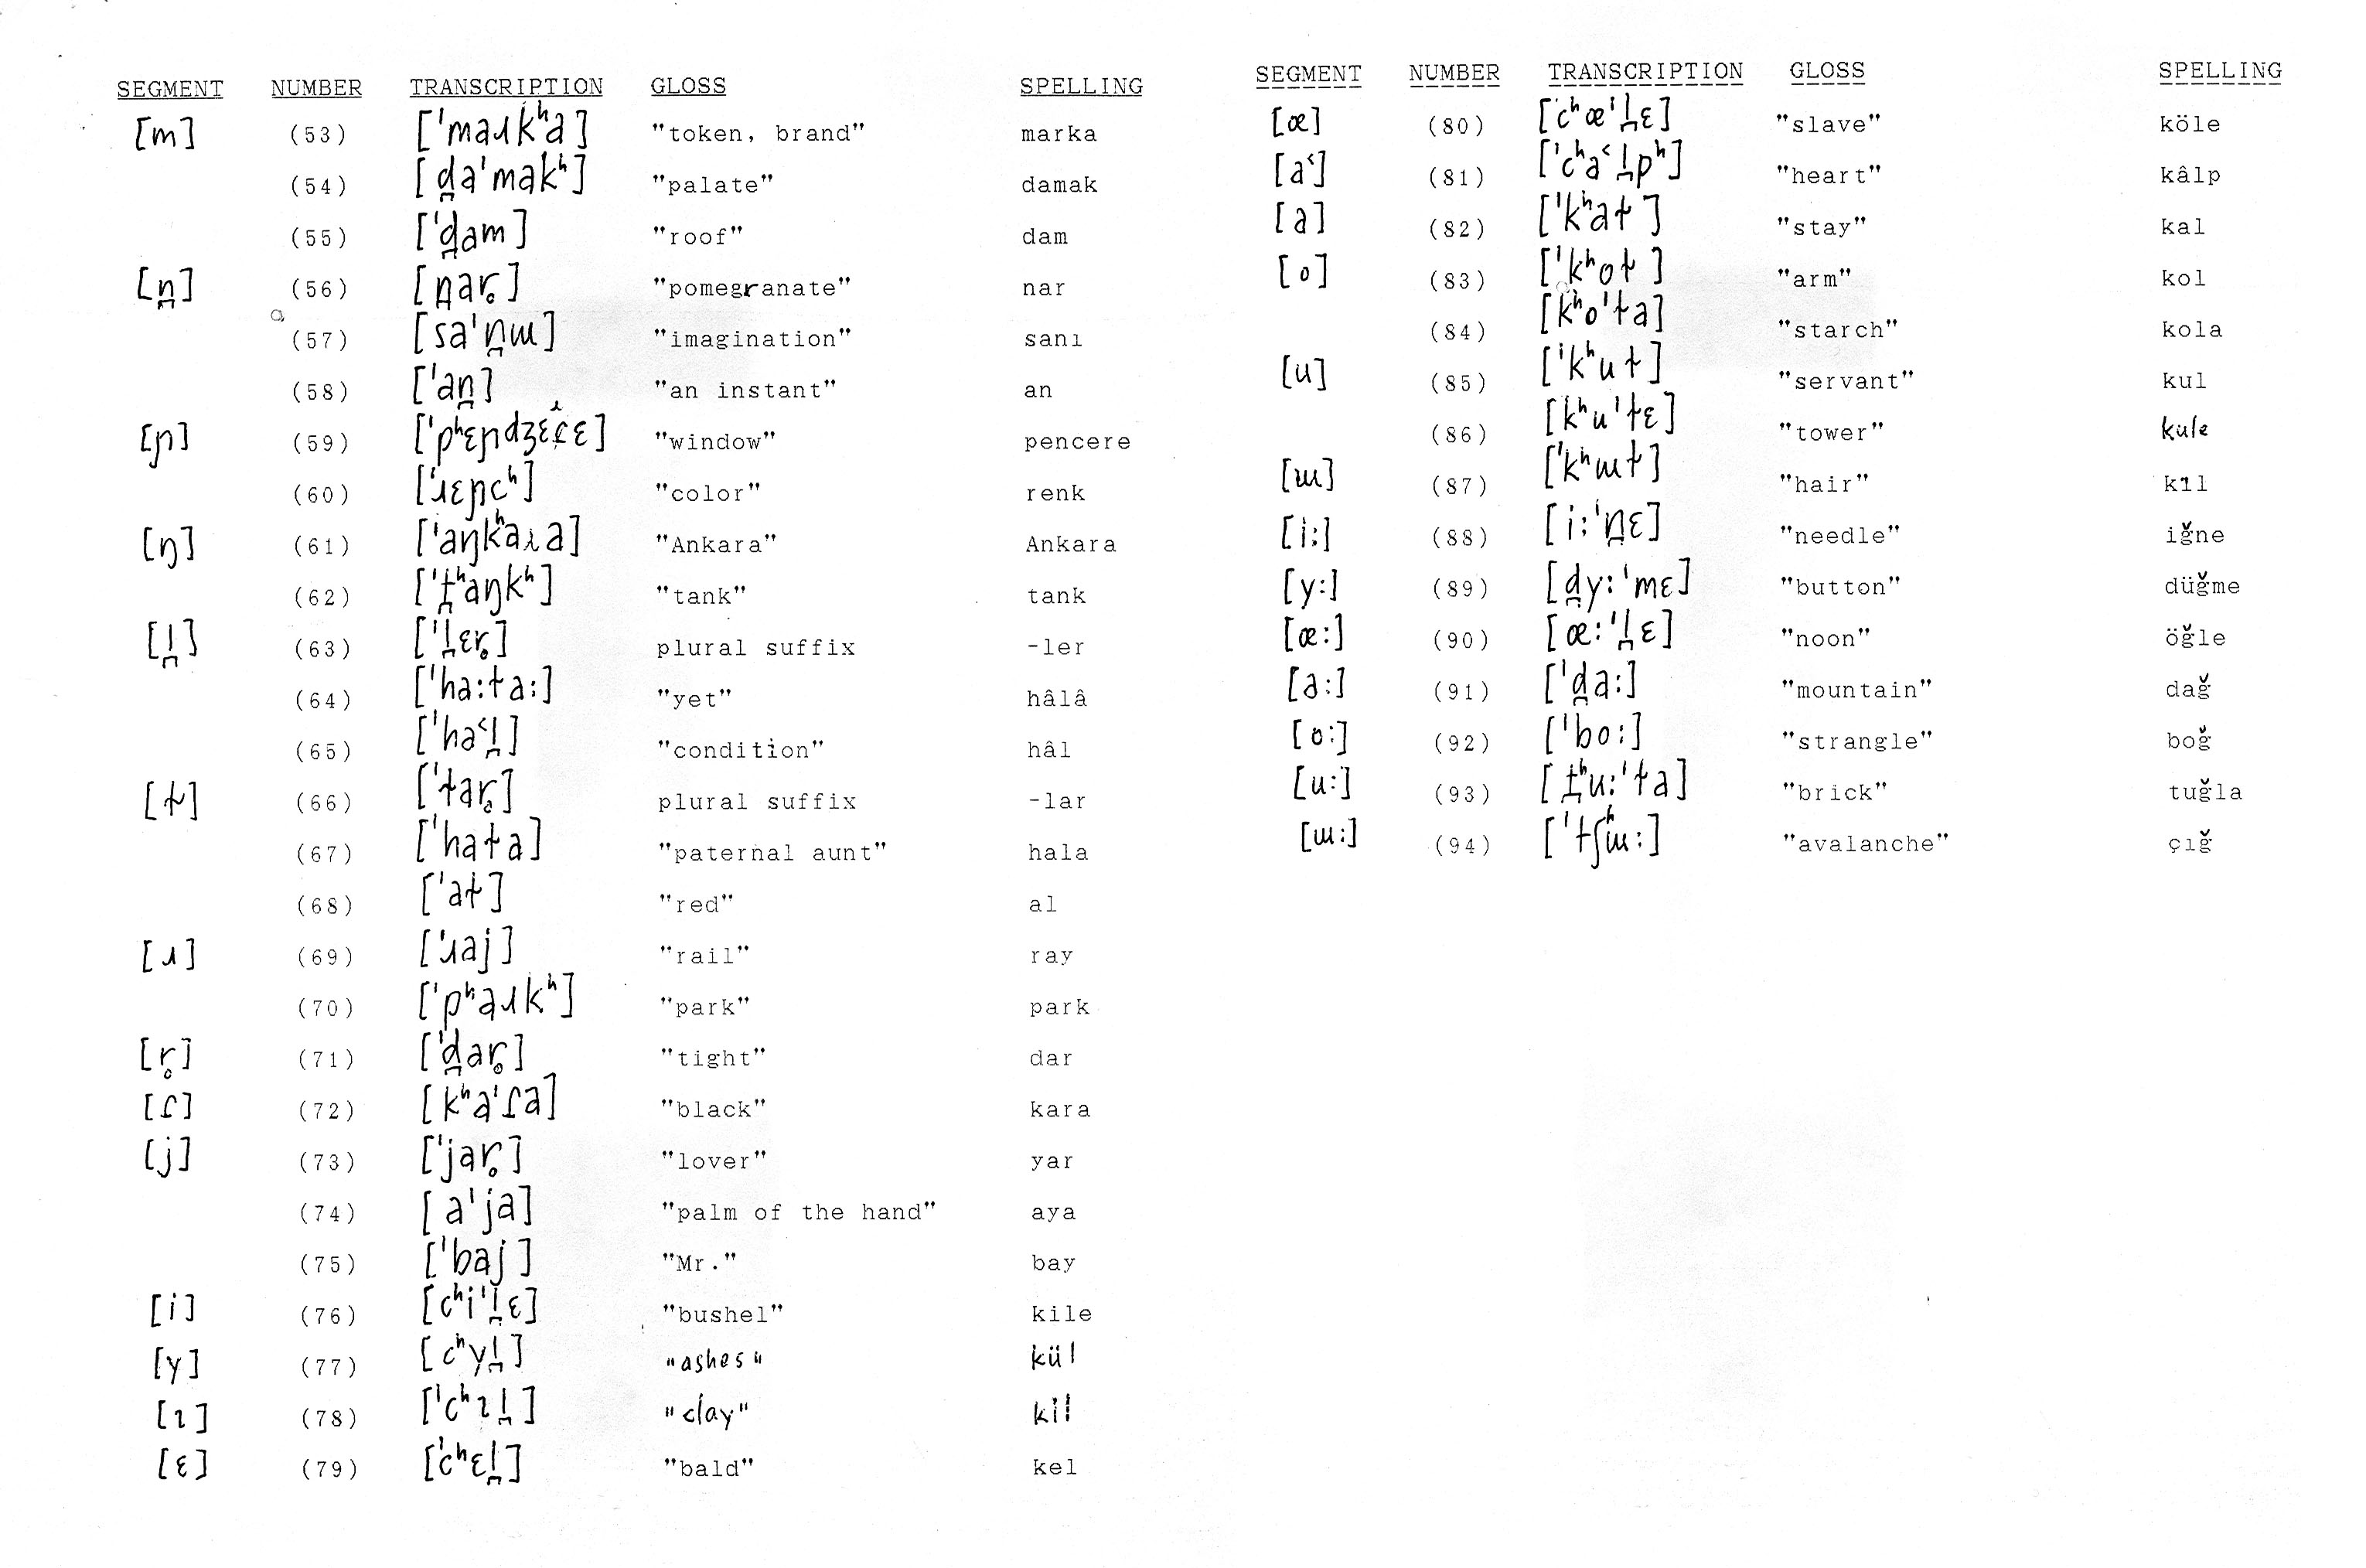 SEGMENT NUMBER TRANSCRIPTION GLOSS SPELLING
[m] (53) [ˈmaɹkʰa] "token, brand" marka
(54) [d̪aˈmakʰ] "palate" damak
(55) [ˈd̪am] "roof" dam
[n̪] (56) [n̪ar̥] "pomegranate" nar
(57) [saˈn̪ɯ] "imagination" sanı
(58) [ˈan̪] "an instant" an
[ɲ] (59) [ˈpʰɛɲdʒɛɾɛ] "window" pencere
(60) [ˈɹɛɲcʰ] "color" renk
[ŋ] (61) [ˈaŋkʰaɹa] "Ankara" Ankara
(62) [ˈt̪ʰaŋkʰ] "tank" tank
[l̪] (63) [ˈl̪ɛr̥] plural suffix -ler
(64) [ˈha:ɫa:] "yet" hâlâ
(65) [ˈha˂l̪] "condition" hâl
[ɫ] (66) [ˈɫar̥] plural suffix -lar
(67) [ˈhaɫa] "paternal aunt" hala
(68) [ˈaɫ] "red" al
[ɹ] (69) [ˈɹaj] "rail" ray
(70) [ˈpʰaɹkʰ] "park" park
[r̥] (71) [ˈd̪ar̥] "tight" dar
[ɾ] (72) [kʰaˈɾa] "black" kara
[j] (73) [ˈjar̥] "lover" yar
(74) [aˈja] "palm of the hand" aya
(75) [ˈbaj] "Mr." bay
[i] (76) [cʰiˈl̪ɛ] "bushel" kile
[y] (77) [cʰyl̪] "ashes" kül
[ɪ] (78) [ˈcʰɪl̪] "clay" kil
[ɛ] (79) [ˈcʰɛl̪] "bald" kel
SEGMENT NUMBER TRANSCRIPTION GLOSS SPELLING
[œ] (80) [cʰœˈl̪ɛ] "slave" köle
[a˂] (81) [ˈcʰa˂l̪pʰ] "heart" kâlp
[a] (82) [ˈkʰaɫ] "stay" kal
[o] (83) [ˈkʰoɫ] "arm" kol
(84) [kʰoˈɫa] "starch" kola
[u] (85) [ˈkʰuɫ] "servant" kul
(86) [kʰuˈɫɛ] "tower" kule
[ɯ] (87) [ˈkʰɯɫ] "hair" kıl
[i:] (88) [i:ˈn̪ɛ] "needle" iğne
[y:] (89) [d̪y:ˈmɛ] "button" düğme
[œ:] (90) [œ:ˈl̪ɛ] "noon" öğle
[a:] (91) [ˈd̪a:] "mountain" dağ
[o:] (92) [ˈbo:] "strangle" boğ
[u:] (93) [t̪ʰu:ˈɫa] "brick" tuğla
[ɯ:] (94) [ˈtʃʰɯ:] "avalanche" çığ